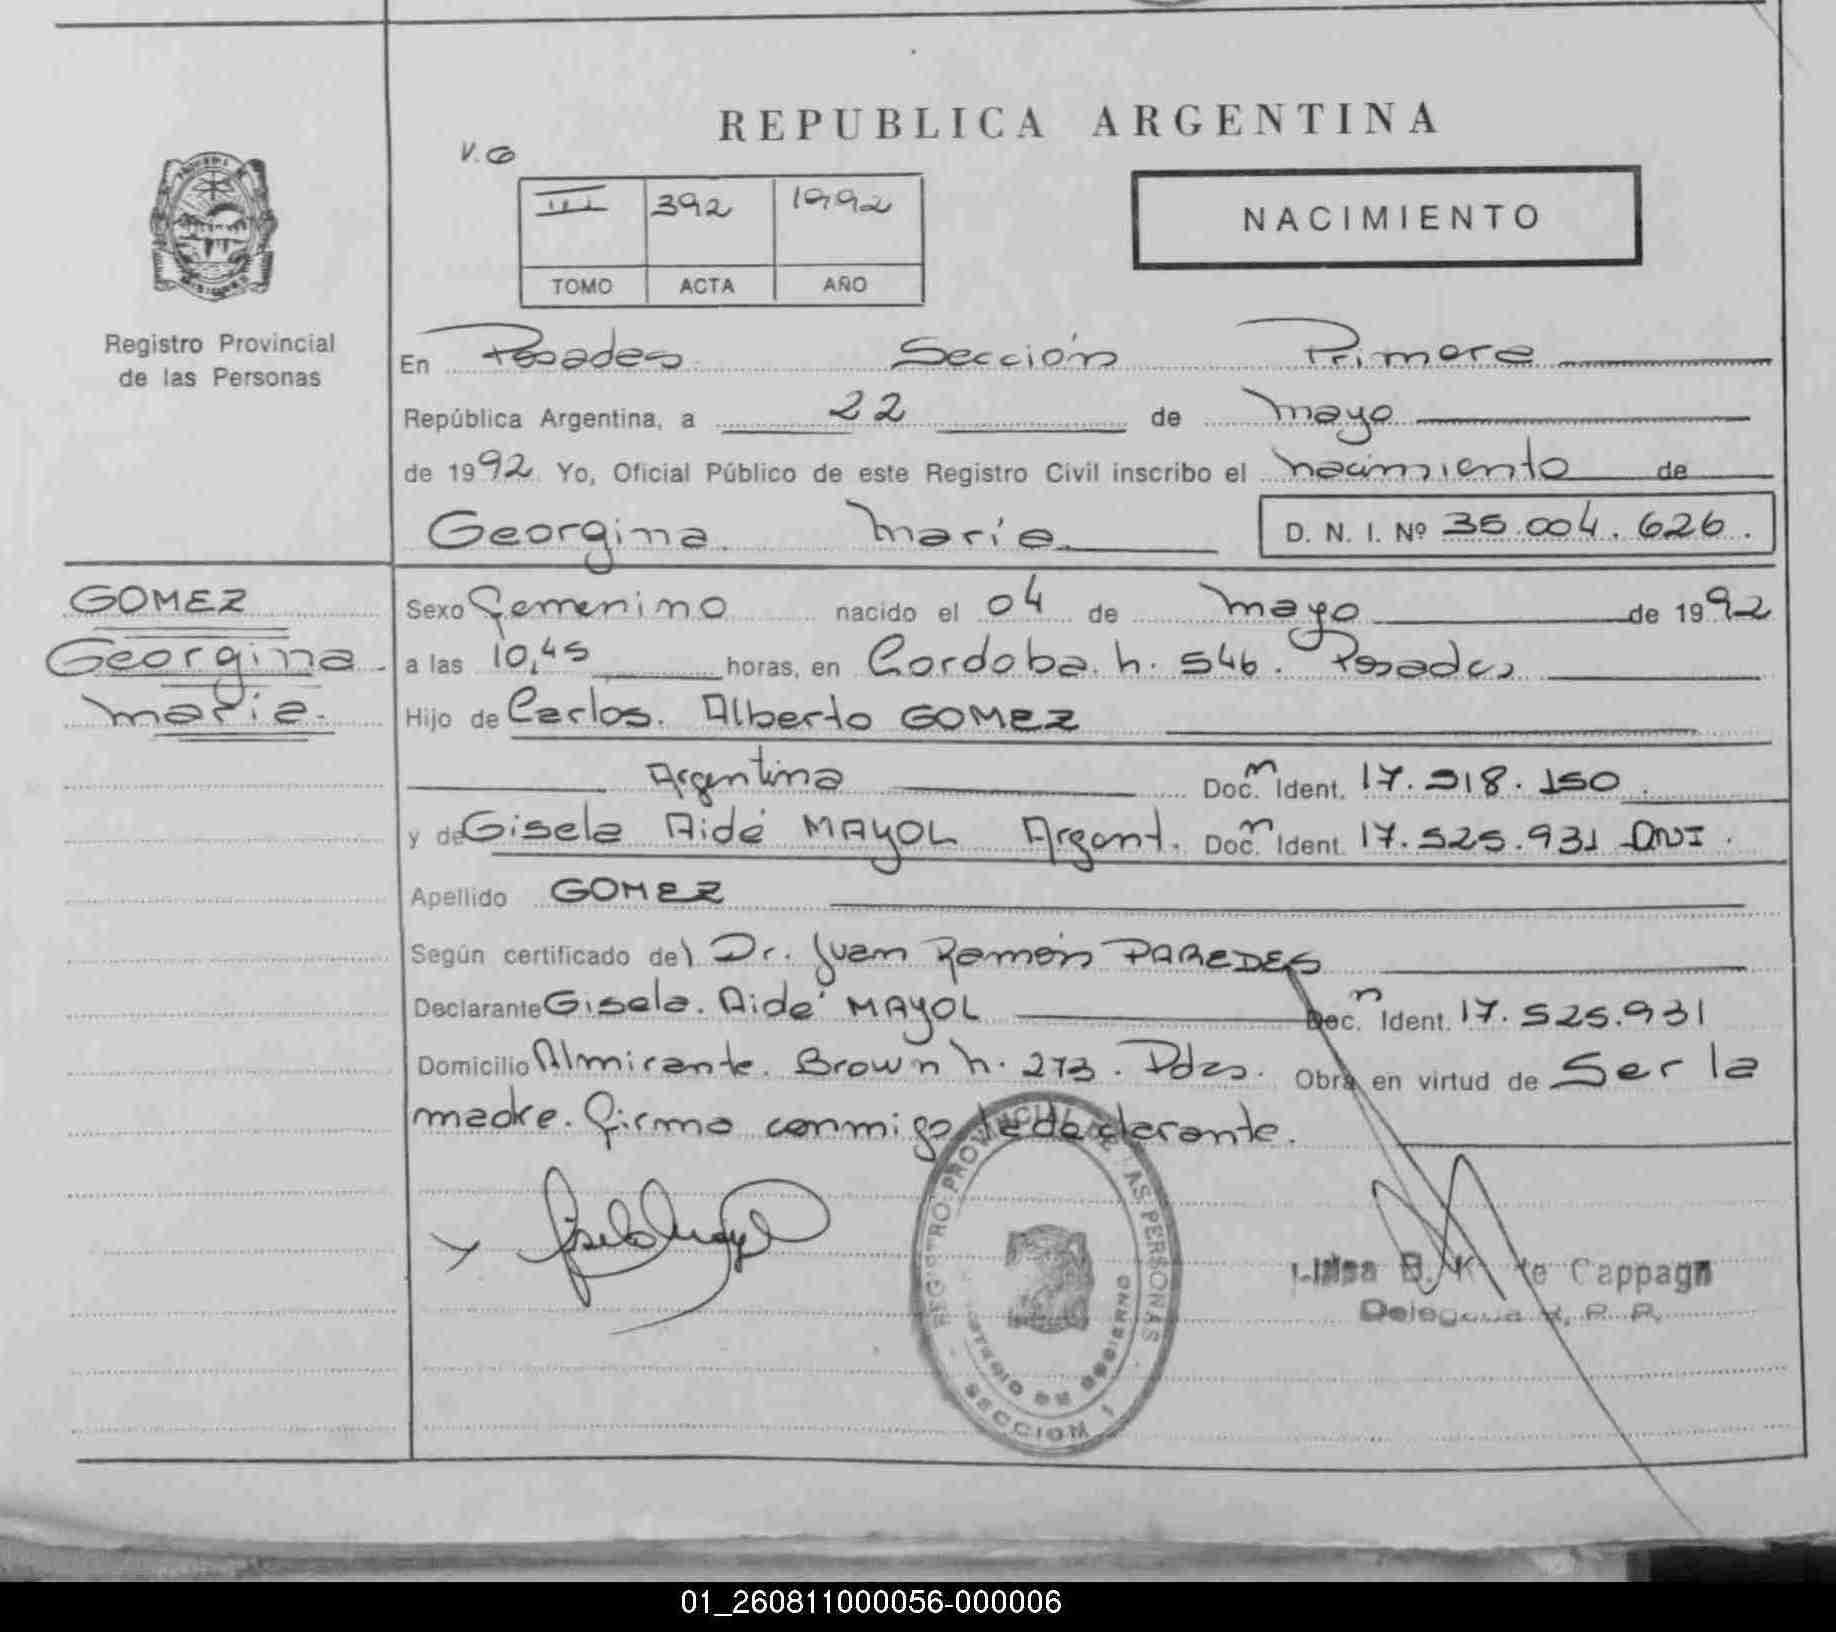 REPUBLICA ARGENTINA
V. G
III 392 1992
TOMO ACTA AÑO
NACIMIENTO
Registro Provincial
de las Personas
En Posadas Sección Primera
República Argentina, a 22 de mayo
de 1992 Yo, Oficial Público de este Registro Civil inscribo el nacimiento de
Georgina Maria D. N. I. Nº 35.004.626.
GOMEZ
Georgina
Maria.
Sexo femenino nacido el 04 de mayo de 1992
a las 10,45 horas, en Cordoba. n. 546. Posadas
Hijo de Carlos. Alberto GOMEZ
Argentina Doc. Ident. 17.318.150.
y de Gisela Aidé MAYOL Argent. Doc. Ident. 17.525.931 DNI.
Apellido GOMEZ
Según certificado del Dr. Juan Ramón PAREDES
Declarante Gisela. Aidé MAYOL Doc. Ident. 17.525.931
Domicilio Almirante. Brown n. 273. Pdas. Obra en virtud de Ser la
madre. firma conmigo la declarante.
REGISTRO PROVINCIAL DE LAS PERSONAS
MINISTERIO DE GOBIERNO
SECCION 1
B. K. de Cappagn
Delegada R. P. P.
01_260811000056-000006